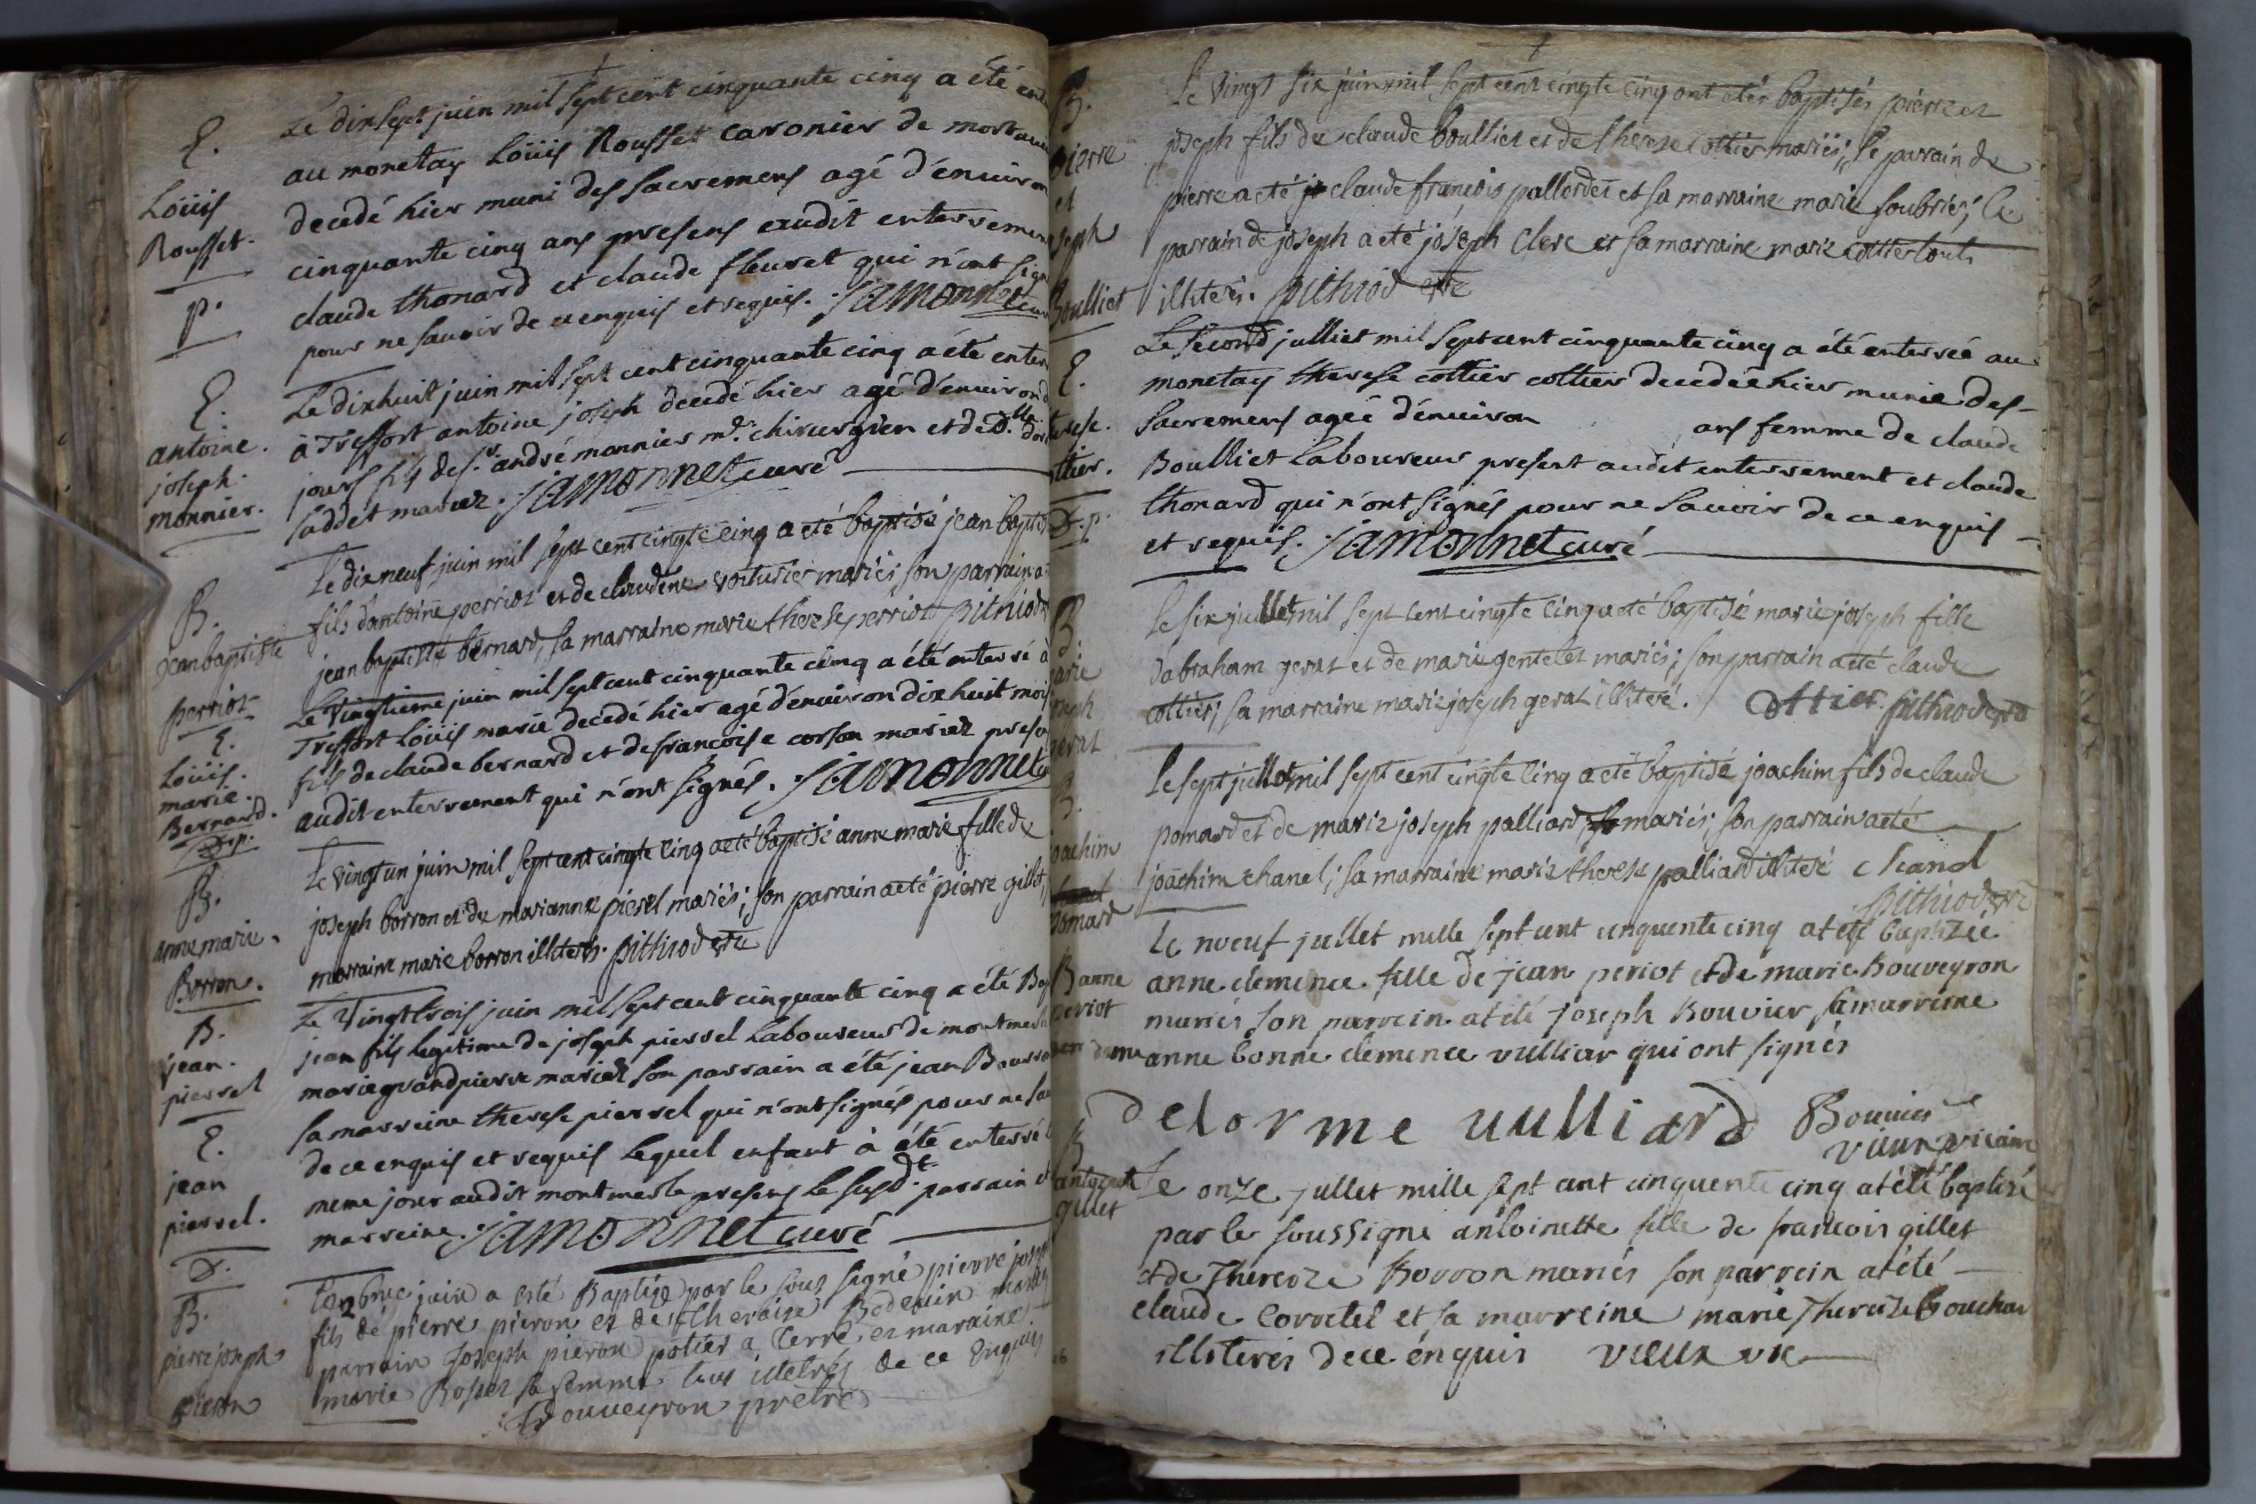 E.
Loüis
Rousset.
p.
Le dixsept juin mil sept cent cinquante cinq a été
au monetay Loüis Rousset caronier de
decedé hier muni des sacremens agé d'énuiron
cinquante cinq ans presens audit enterremen
claude thonard et claude fleuret qui n'ont
pour ne sauoir de ce enquis et requis. jamonnet
E.
antoine.
joseph.
monnier.
Le dixhuit juin mil sept cent cinquante cinq a été
à Treffort antoine joseph decedé hier agé d'énuiron
jours fils de s.r andré monnier m.e chirurgien et de D.lle
laddet mariez. jamonnet curé
B.
Jean baptiste
perriot
Le dixneuf juin mil sept cent cinqte cinq a eté baptisé jean
fils d'antoine perriot et de claudine voiturier mariés; son parrain a
jean baptiste bernard, sa marraine marie therese perriot pithiod
E.
Loüis.
marie.
Bernard.
D.p.
Le vingtieme juin mil sept cent cinquante cinq a été enterré à
Treffort Loüis marie decedé hier agé d'énuiron dix huit mois
fils de claude bernard et de francoise corson mariez
audit enterrement qui n'ont signés. jamonnet
B.
anne marie.
Borron.
Le vingt un juin mil sept cent cinqte cinq a eté baptisé anne marie fille de
joseph borron et de marianne pierel mariés; son parrain a eté pierre gillet,
marraine marie borron illiterés. pithiod vre
B.
jean.
pierrel
Le vingt trois juin mil sept cent cinquante cinq a été
jean fils legitime de joseph pierrel Laboureur de
marie grandpierre mariez son parrain a été jean
sa marreine therese pierrel qui n'ont signés pour ne
E.
jean
pierrel.
D.
de ce enquis et requis Lequel enfant à été enterré
meme jour audit montmerle presens le susd.t parrain et
marreine. jamonnet curé
B.
pierre joseph
pieron
juin a esté Baptizé par le sous signé pierre
fils de pierre pieron et de theraise
parrain Joseph pieron potier a terre et maraine
marie Rosset sa femme tous illetrés de ce enquis
Bouueyron prêtre
B.
pierre
et
joseph
Boulliet
Le vingt six juin mil sept cent cinqte cinq ont etés baptisés pierre et
joseph fils de claude boulliet et de therese cottier mariés; le parrain de
pierre a eté claude françois pallordet et sa marraine marie soubrier; le
parrain de joseph a eté joseph clerc et sa marraine marie cottier touts
illiterés. pithiod vre
E.
therese.
cottier.
D.p.
Le second julliet mil sept cent cinquante cinq a été enterrée au
monetay therese cottier cottier decedée hier munie des
sacremens ageé d'énuiron ans femme de claude
Boulliet Laboureur present audit enterrement et claude
thonard qui n'ont signés pour ne sauoir de ce enquis
et requis. jamonnet curé
B.
marie
joseph
gerat
Le six jullet mil sept cent cinqte cinq a eté baptisé marie joseph fille
d'abraham gerat et de marie gentelet mariés; son parrain a eté claude
cottier; sa marraine marie joseph gerat illiteré. Cottier. pithiod vre
B.
joachim
pomard
Le sept jullet mil sept cent cinqte cinq a eté baptisé joachim fils de claude
pomard et de marie joseph palliard mariés; son parrain a eté
joachim chanel; sa marraine marie therese palliard illiteré chanel
pithiod vre
B anne
periot
Le noeuf jullet mille sept cent cinquente cinq at eté baptizée
anne clemence fille de jean periot et de marie Bouveyron
mariés son parrein at été joseph Bouvier sa marreine
anne bonne clemence vulliar qui ont signés
delorme uulliard Bouuier
vieux vicaire
B
antoinette
gillet
Le onze jullet mille sept cent cinquente cinq at été baptizé
par le soussigné antoinette fille de francois gillet
et de Thereze Borron mariés son parrein at été
claude Corretel et sa marreine marie Thereze bouchar
illiterés de ce énquis vieux vic